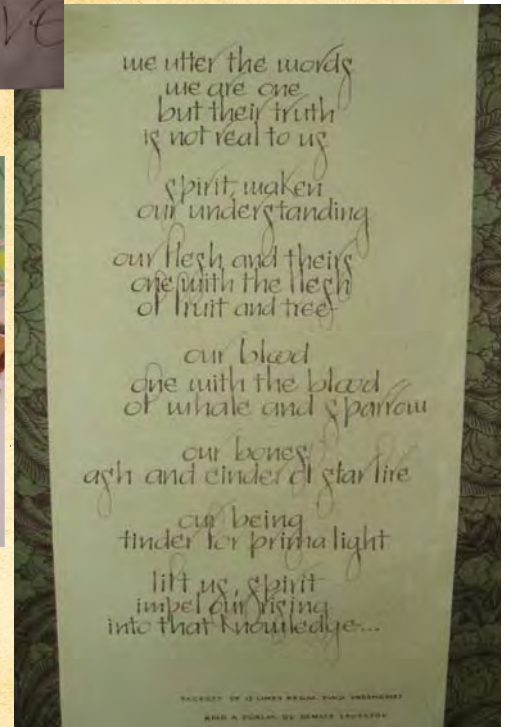 VE
we utter the words
we are one
but their truth
is not real to us
spirit, waken
our understanding
our flesh and theirs
one with the flesh
of fruit and tree
our blood
one with the blood
of whale and sparrow
our bones
ash and cinder of star fire
our being
tinder for primal light
lift us, spirit
impel our rising
into that knowledge...
OF 12 LINES FROM
AND A PSALM, BY DENISE LEVERTOV